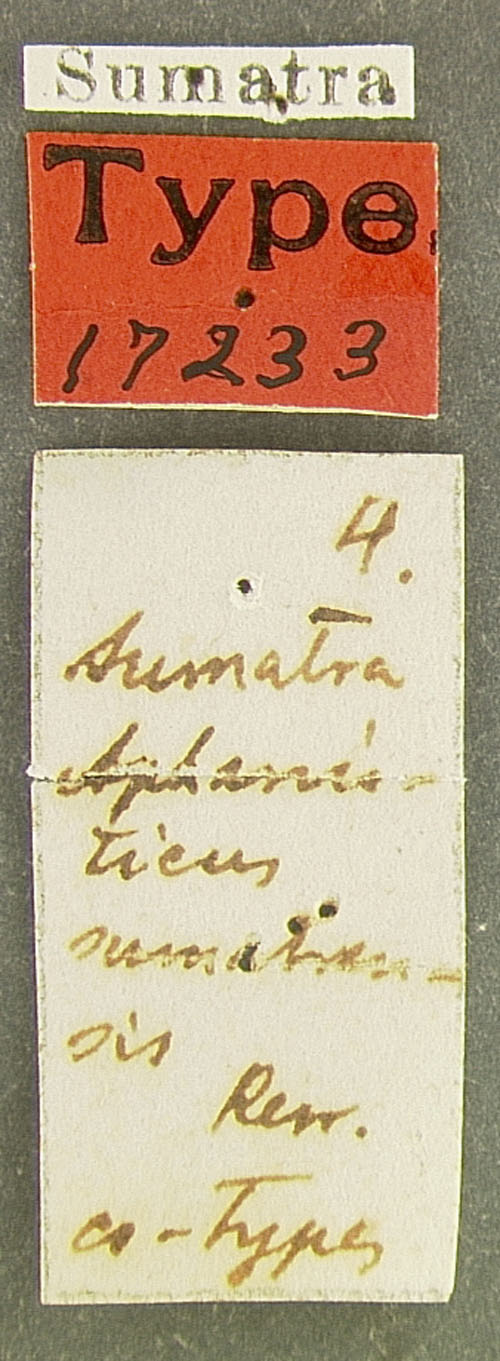 Sumatra
Type
17233
4.
Sumatra
Aphanis-
ticus
sumatren-
sis
Kerr.
co-Types